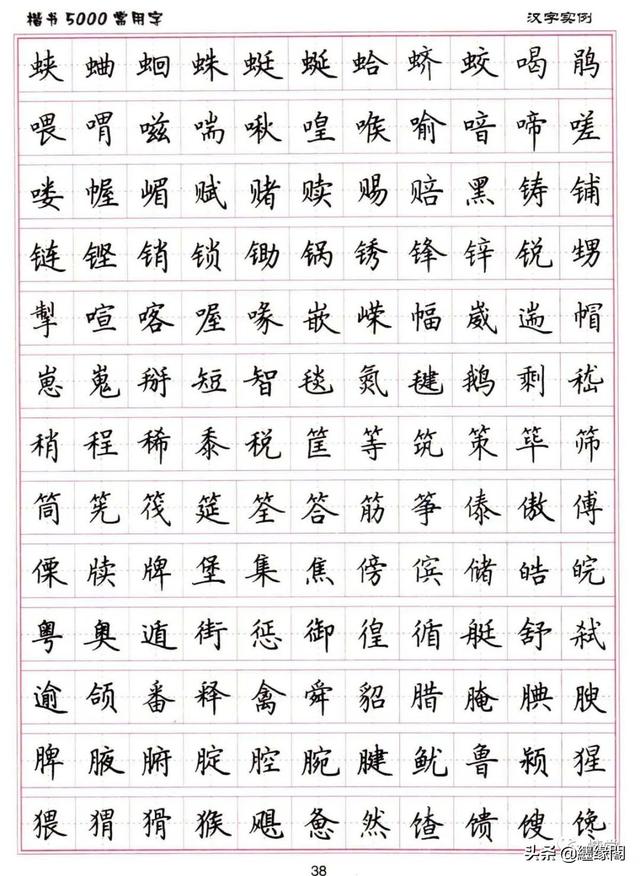 楷书5000常用字 汉字实例
蛱 蛐 蛔 蛛 蜓 蜒 蛤 蛴 蛟 喝 鹃
喂 喟 嗞 喘 啾 喤 喉 喻 喑 啼 嗟
喽 幄 嵋 赋 赌 赎 赐 赔 黑 铸 铺
链 铿 销 锁 锄 锅 锈 锋 锌 锐 甥
掣 喧 喀 喔 喙 嵌 嵘 幅 崴 遄 帽
崽 嵬 掰 短 智 毯 氮 毽 鹅 剩 嵇
稍 程 稀 黍 税 筐 等 筑 策 筚 筛
筒 筅 筏 筵 筌 答 筋 筝 傣 傲 傅
傈 牍 牌 堡 集 焦 傍 傧 储 皓 皖
粤 奥 遁 街 惩 御 徨 循 艇 舒 弑
逾 颌 番 释 禽 舜 貂 腊 腌 腆 腴
脾 腋 腑 腚 腔 腕 腱 鱿 鲁 颍 猩
猥 猬 猾 猴 飓 惫 然 馇 馈 馊 馋
38
头条 @纒缘閣